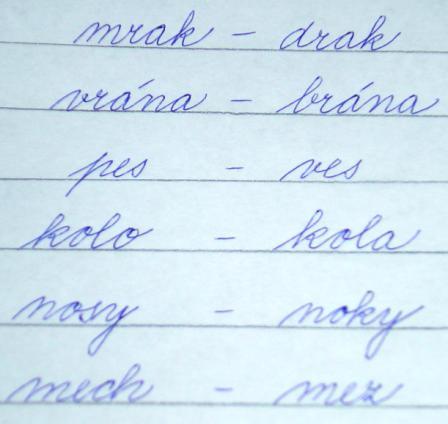 mrak - drak
vrána - brána
pes - ves
kolo - kola
nosy - noky
mech - mez